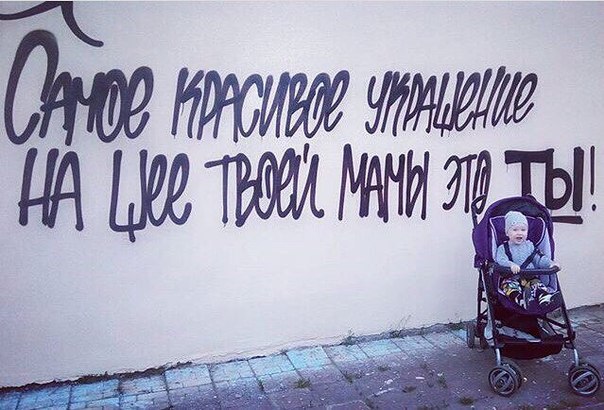 Самое красивое украшение
на шее твоей мамы это ты!